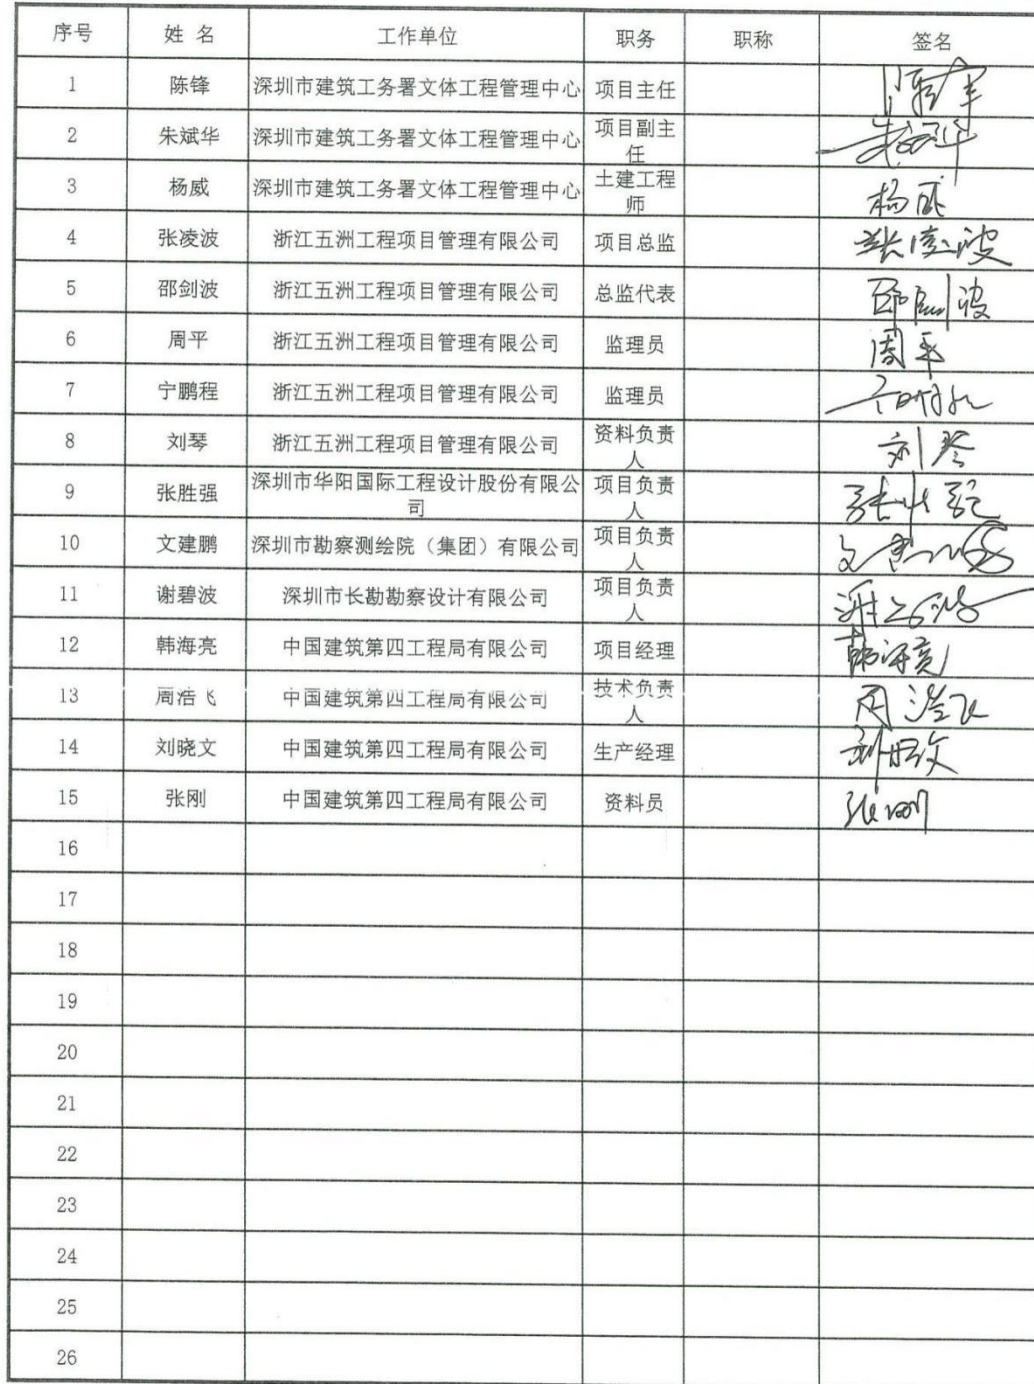 序号 姓 名 工作单位 职务 职称 签名
1 陈锋 深圳市建筑工务署文体工程管理中心 项目主任
2 朱斌华 深圳市建筑工务署文体工程管理中心 项目副主任
3 杨威 深圳市建筑工务署文体工程管理中心 土建工程师 杨威
4 张凌波 浙江五洲工程项目管理有限公司 项目总监 张凌波
5 邵剑波 浙江五洲工程项目管理有限公司 总监代表 邵剑波
6 周平 浙江五洲工程项目管理有限公司 监理员 周平
7 宁鹏程 浙江五洲工程项目管理有限公司 监理员
8 刘琴 浙江五洲工程项目管理有限公司 资料负责人 刘琴
9 张胜强 深圳市华阳国际工程设计股份有限公司 项目负责人 张胜强
10 文建鹏 深圳市勘察测绘院（集团）有限公司 项目负责人
11 谢碧波 深圳市长勘勘察设计有限公司 项目负责人
12 韩海亮 中国建筑第四工程局有限公司 项目经理 韩海亮
13 周浩飞 中国建筑第四工程局有限公司 技术负责人 周浩飞
14 刘晓文 中国建筑第四工程局有限公司 生产经理 刘晓文
15 张刚 中国建筑第四工程局有限公司 资料员 张刚
16
17
18
19
20
21
22
23
24
25
26